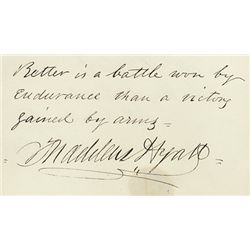 Better is a battle won by
endurance than a victory
gained by arms =
Thaddeus Hyatt